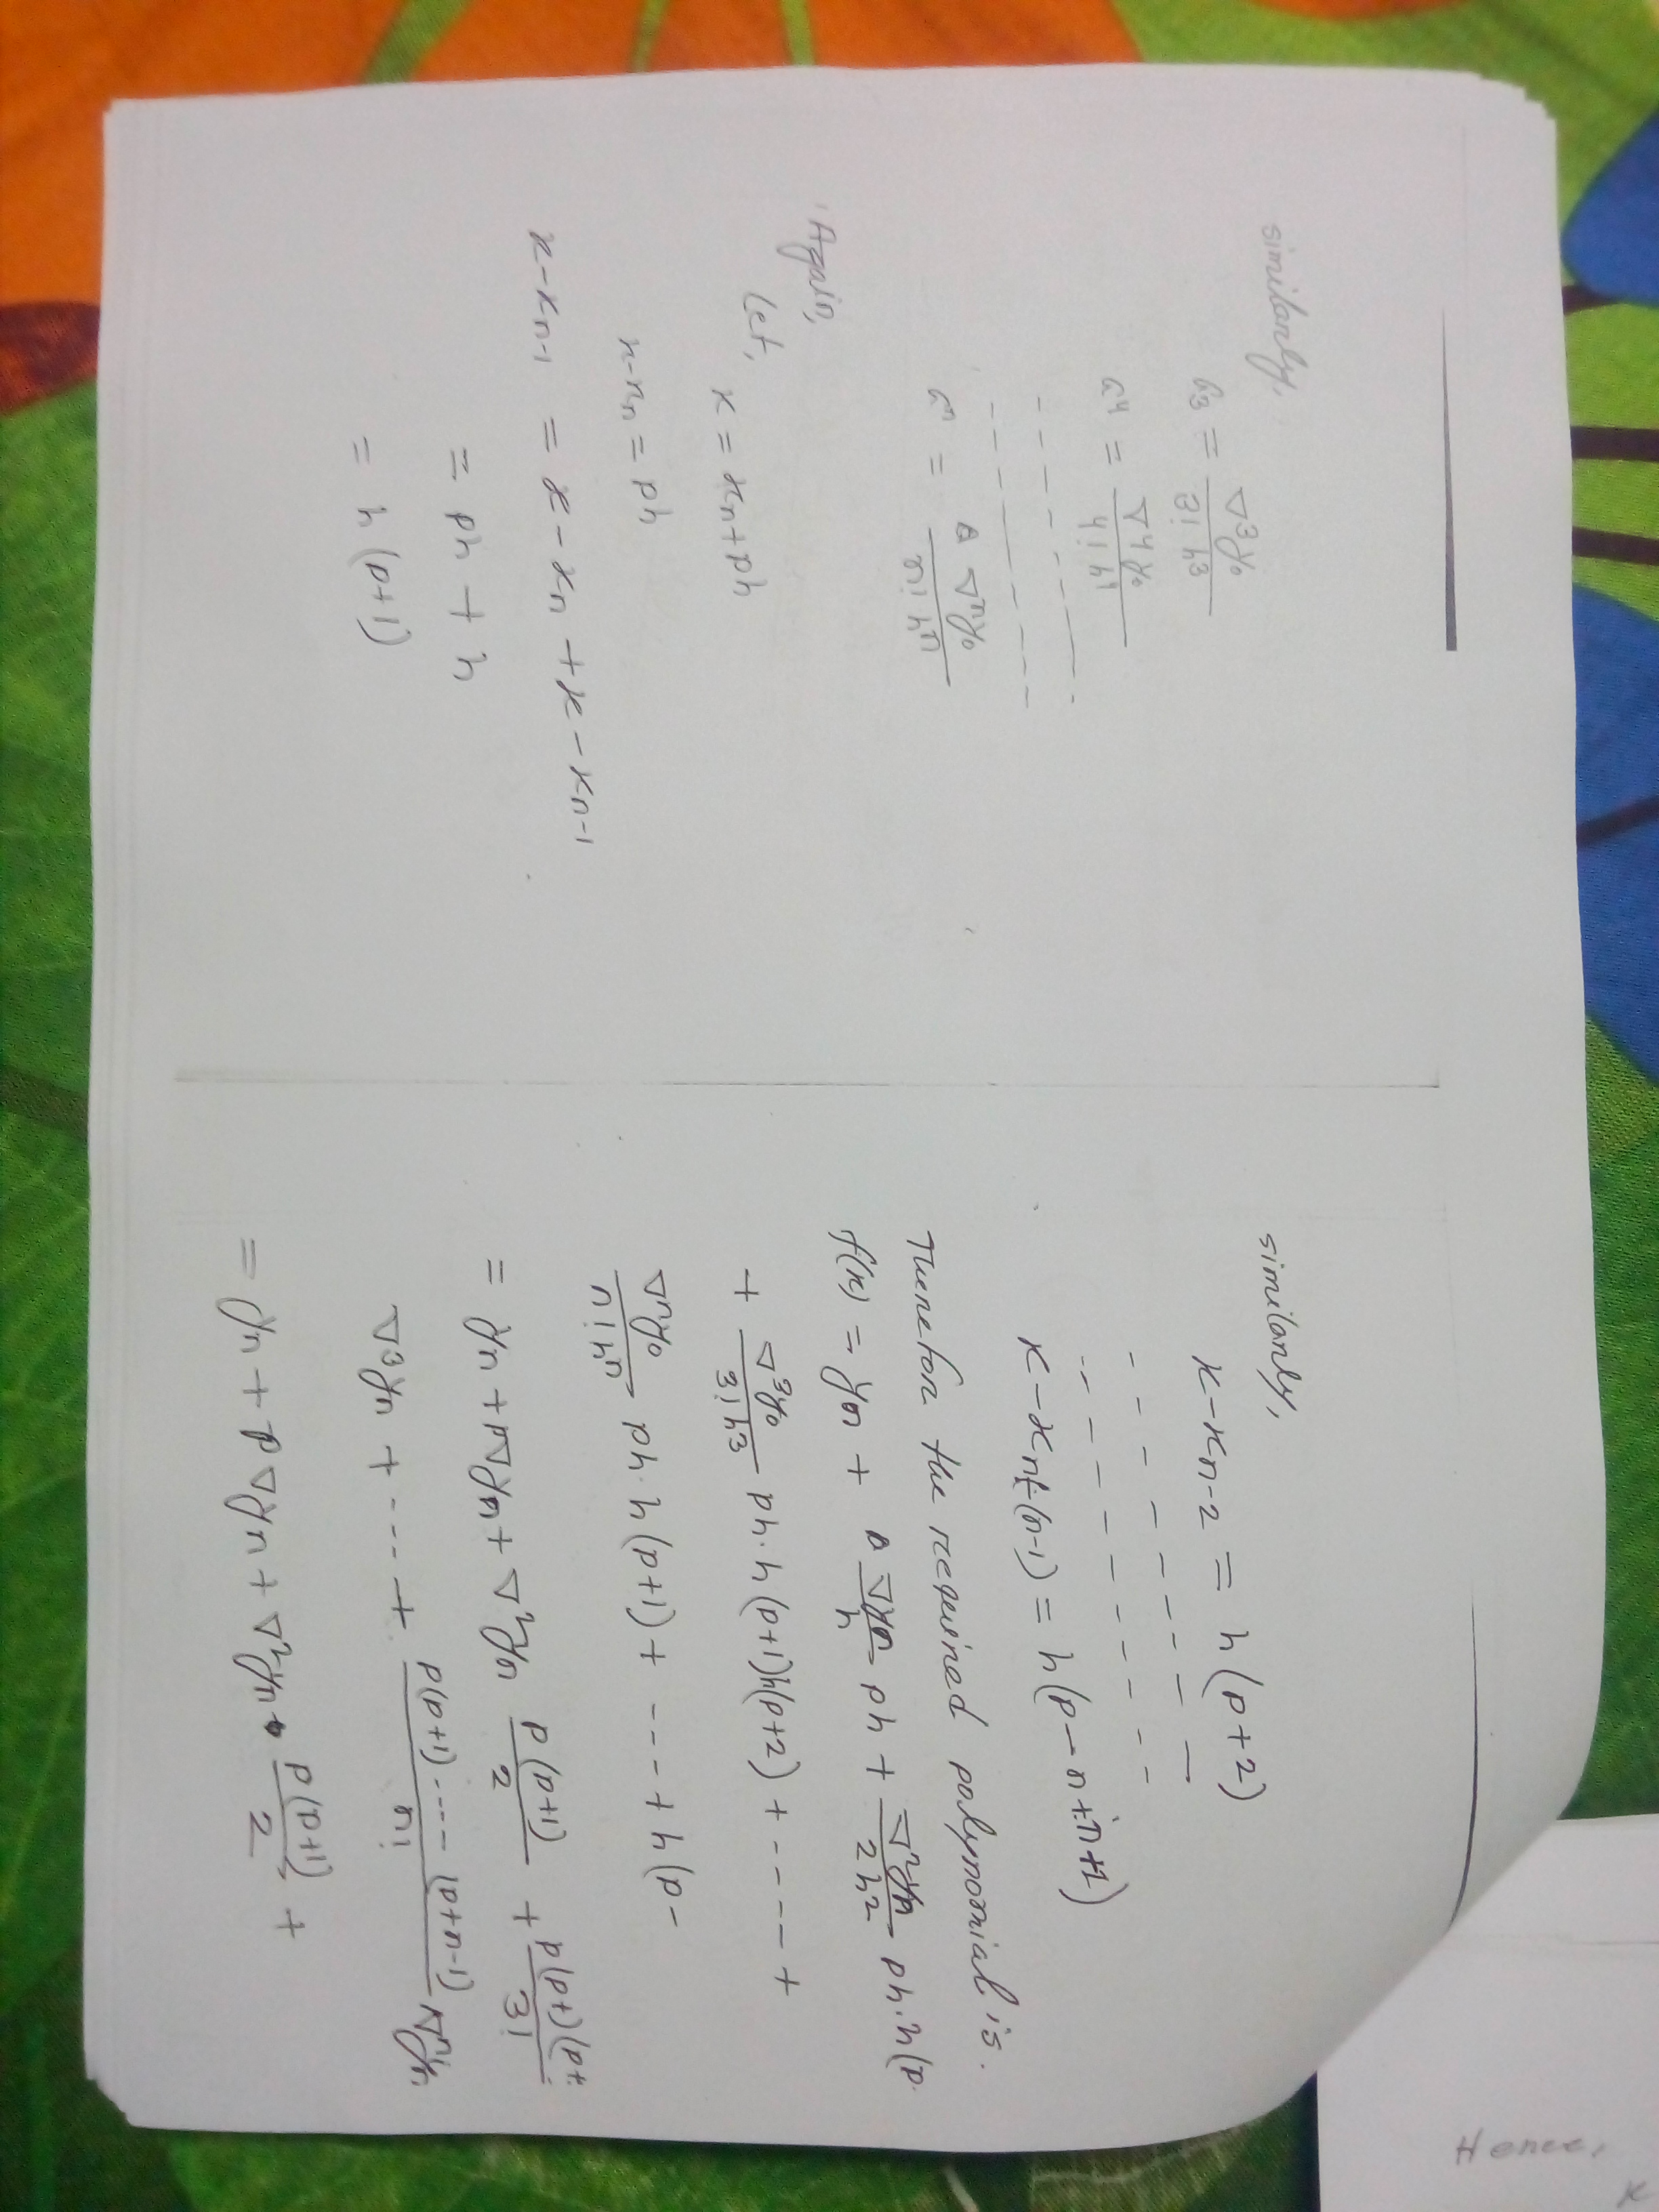 similarly,
a₃ = ∇³y₀ / 3! h³
a⁴ = ∇⁴y₀ / 4! h⁴
- - - - - - - - -
- - - - - - - - -
aⁿ = ∇ⁿy₀ / n! hⁿ
Again,
Let,
x = xₙ + ph
x - xₙ = ph
x - xₙ₋₁ = x - xₙ + x - xₙ₋₁
= ph + h
= h (p+1)
similarly,
x - xₙ₋₂ = h (p+2)
- - - - - - - - -
- - - - - - - - -
= h (p - n + n + 1)
Therefor the required polynomial is.
f(x) = yₙ + ∇yₙ / h ph + ∇²yₙ / 2h² ph · h (p
+ ∇³y₀ / 3! h³ ph · h (p+1) h (p+2) + - - - - +
∇ⁿy₀ / n! hⁿ ph · h (p+1) + - - - + h (p -
= yₙ + p∇yₙ + ∇²yₙ p (p+1) / 2 + p(p+)(p+ / 3!
∇³yₙ + - - - + p(p+1) - - - - (p+n-1) / n! ∇ⁿyₙ
= yₙ + p ∇yₙ + ∇²yₙ · p (p+1) / 2 +
Hence,
x